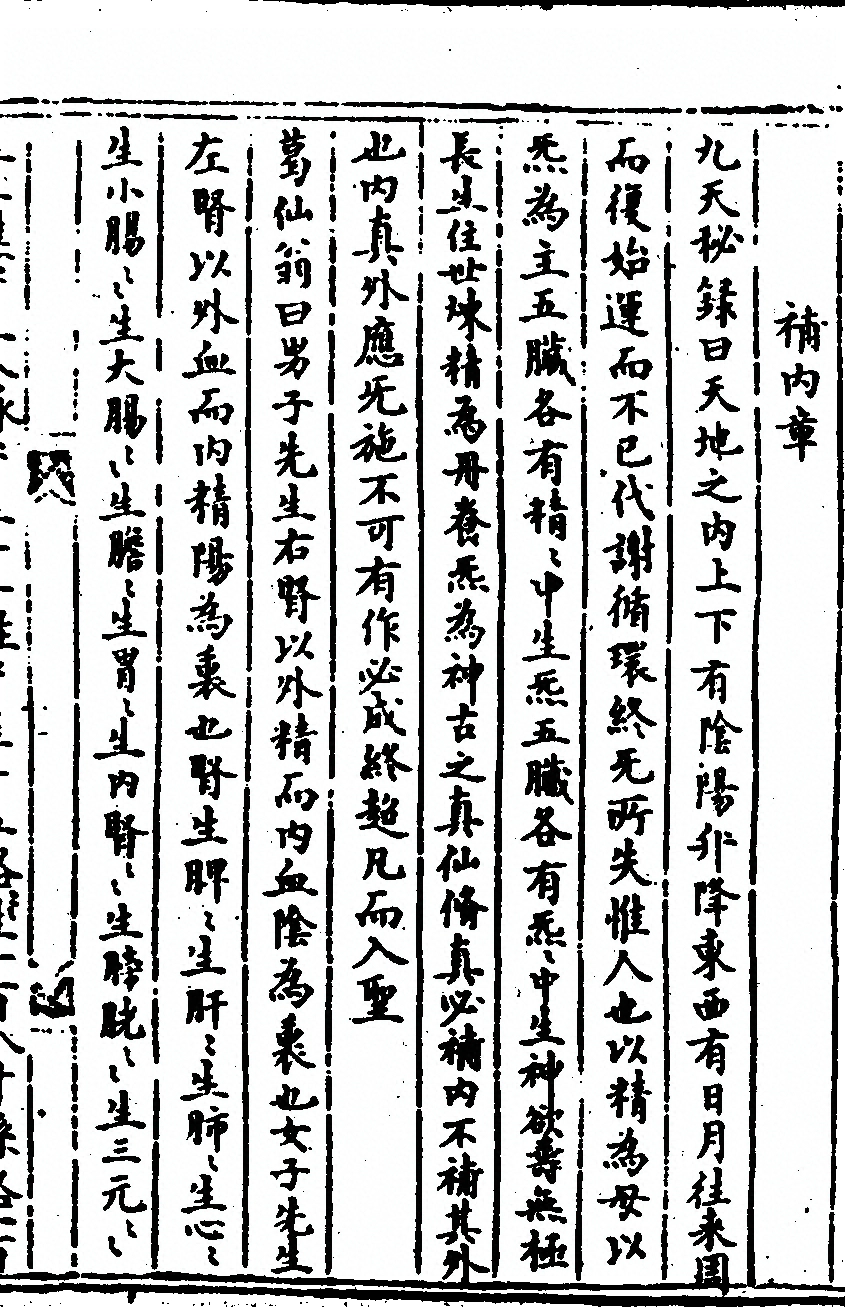 補内章
九天秘録曰天地之内上下有陰陽升降東西有日月往来周
而復始運而不已代謝循環終无所失惟人也以精為母以
炁為主五臓各有精〻中生炁五臓各有炁〻中生神欲壽無極
長生住世煉精為丹養炁為神古之真仙脩真必補内不補其外
也内真外應无施不可有作必成終超凡而入聖
葛仙翁曰男子先生右腎以外精而内血陰為裏也女子先生
左腎以外血而内精陽為裏也腎生脾〻生肝〻生肺〻生心〻
生小腸〻生大腸〻生膽〻生胃〻生内腎〻生膀胱〻〻生三元〻